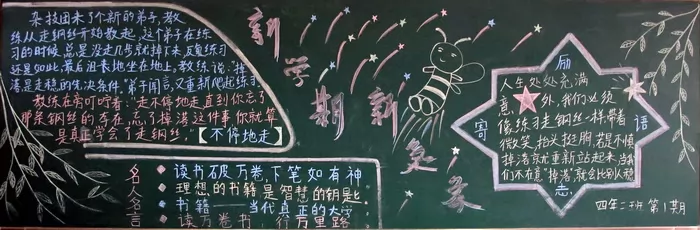 杂技团来了个新的弟子，教
练从走钢丝开始教起，这个弟子在练
习的时候总是没走几步就掉下来，反复练习
还是如此，最后沮丧地坐在地上。教练说："掉
落是走稳的先决条件。"弟子闻言，又重新爬起练习
教练在旁叮咛着："走不停地走直到你忘了
那条钢丝的存在，忘了掉落这件事你就算
是真正学会了走钢丝。"
【不停地走】
新学期新气象
名人名言
读书破万卷，下笔如有神
理想的书籍是智慧的钥匙
书籍——当代真正的大学
读万卷书，行万里路
励志寄语
人生处处充满
意外，我们必须
像练习走钢丝一样，带着
微笑，抬头挺胸，若是不慎
掉落就重新站起来，当我
们不在意"掉落"，就会比别人稳
四年二班 第1期